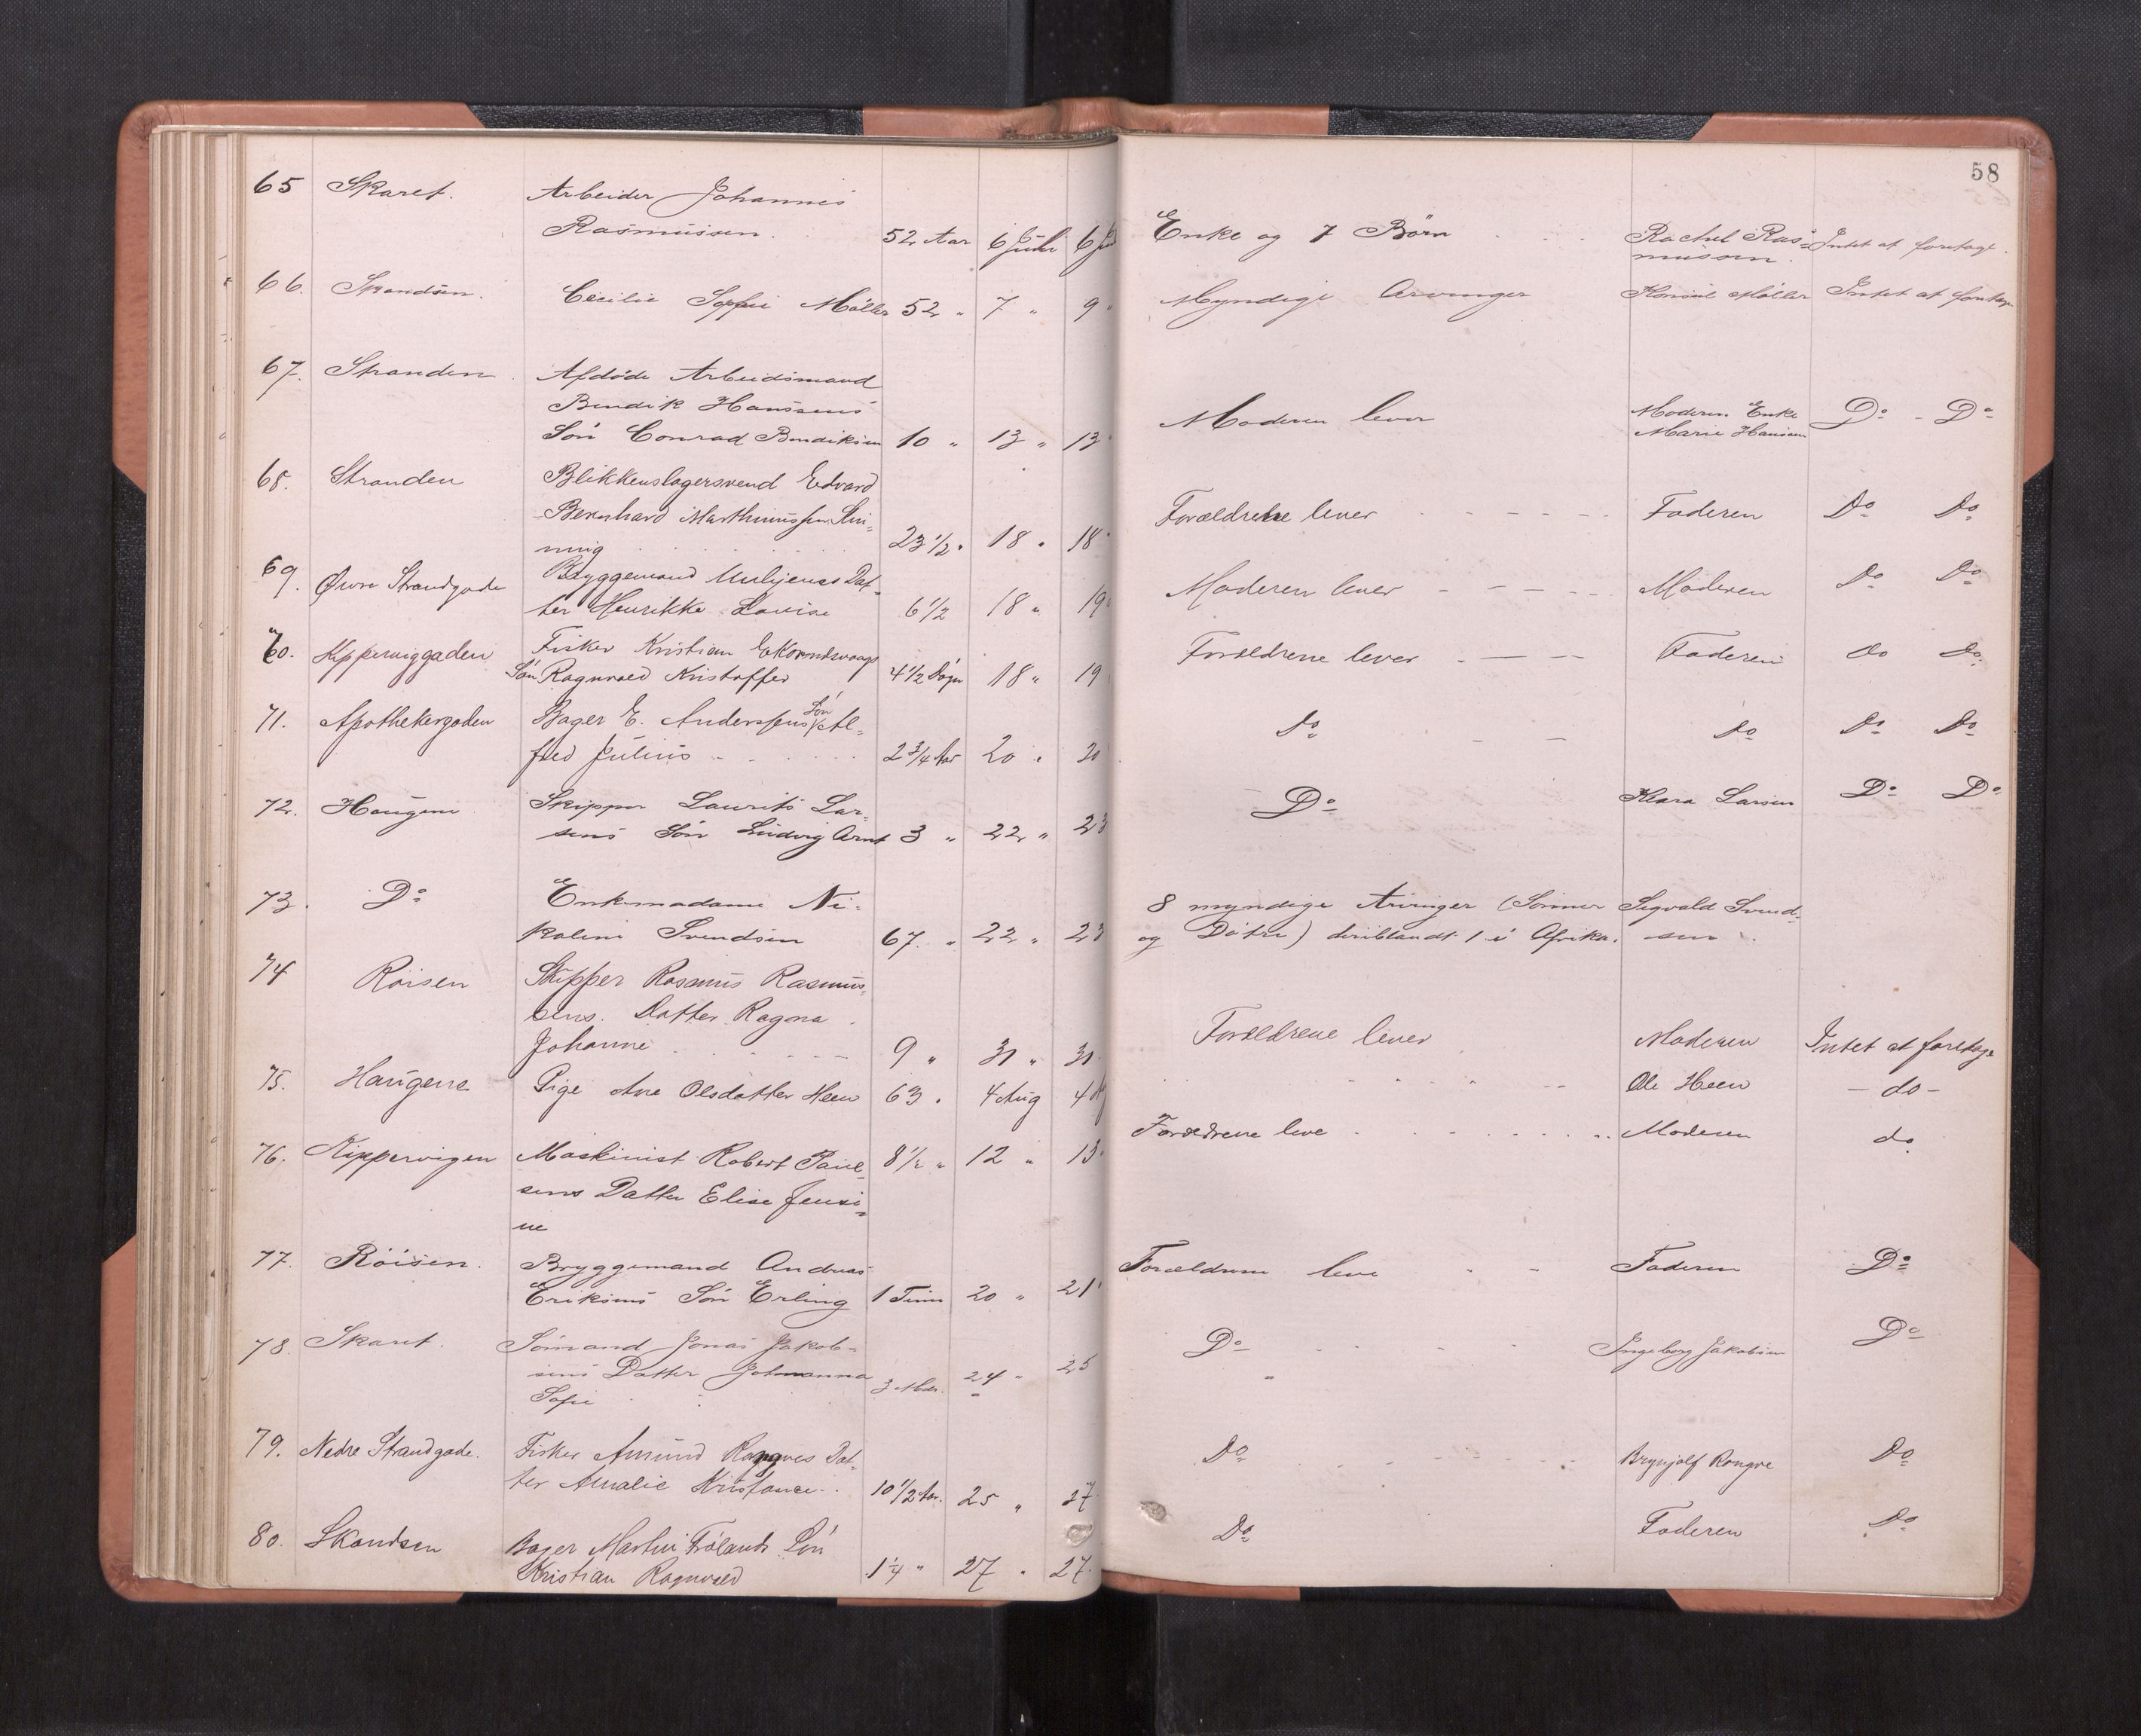 58
65 Skaret. Arbeider Johannes
Rasmussen. 52 Aar 6 Juli 6 Enke og 7 Børn Rachel Ras= Intet at foretage.
mussen.
66. Skandsen. Cecilie Sophie Møller 52 " 7 " 9 Myndige Arvinger Konsul Møller Intet at
67. Stranden Afdøde Arbeidsmand
Bendik Hanssens Moderen Enke
Søn Conrad Bendiksen 10 " 13 " 13 Moderen lever Marie Hansen Do - Do
68. Stranden Blikkenslagersvend Edvard
Bernhard Marthinussen
ning 23 1/2 " 18 " 18 Forældrene lever Faderen Do Do
69. Øvre Strandgade Bryggemand Dat=
ter Henrikke Lovise 6 1/2 18 " 19 Moderen lever Moderen Do Do
70. Kipperviggaden Fisker Kristian
Søn Ragnvald Kristoffer 4 1/2 Døgn 18 " 19 Forældrene lever Faderen do do
71. Apothekergaden Bager E. Anderssens Søn Al=
fred Julius 2 3/4 Aar 20 " 20 Do Do Do Do
72. Haugene Skipper Laurits Lar=
sens Søn Ludvig Arnt 3 " 22 " 23 Do Klara Larsen Do Do
73. Do Enkemadame Ni= 8 myndige Arvinger (Sønner Sigvald Svend=
koline Svendsen 67 " 22 " 23 og Døtre) deriblandt 1 i Afrika. sen
74 Røisen Skipper Rasmus Rasmus=
sens Datter Ragna
Johanne 9 " 31 " 31 Forældrene lever Moderen Intet at foretage
75. Haugene Pige Ane Olsdatter Heen 63 " 4 Aug 4 Ole Heen - do -
76. Kippervigen Maskinist Robert 8 1/2 " 12 " 13 Forældrene leve Moderen do
sens Datter Elise Jensi=
ne
77. Røisen. Bryggemand Andreas
Eriksens Søn Erling 1 Time 20 " 21 Forældrene leve Faderen Do
78. Skaret. Sømand Jonas Jakob=
sens Datter Johanna 3 Mdr. 24 " 25 Do Ingeborg Jakobsen Do
Sofie
79. Nedre Strandgade. Fisker Amund Rongves Dat=
ter Amalie Kristance 10 1/2 Aar. 25 " 27 Do Brynjolf Rongve Do
80. Skandsen Bager Martin Frølands Søn
Kristian Ragnvald 1 1/4 " 27 " 27 Do Faderen Do